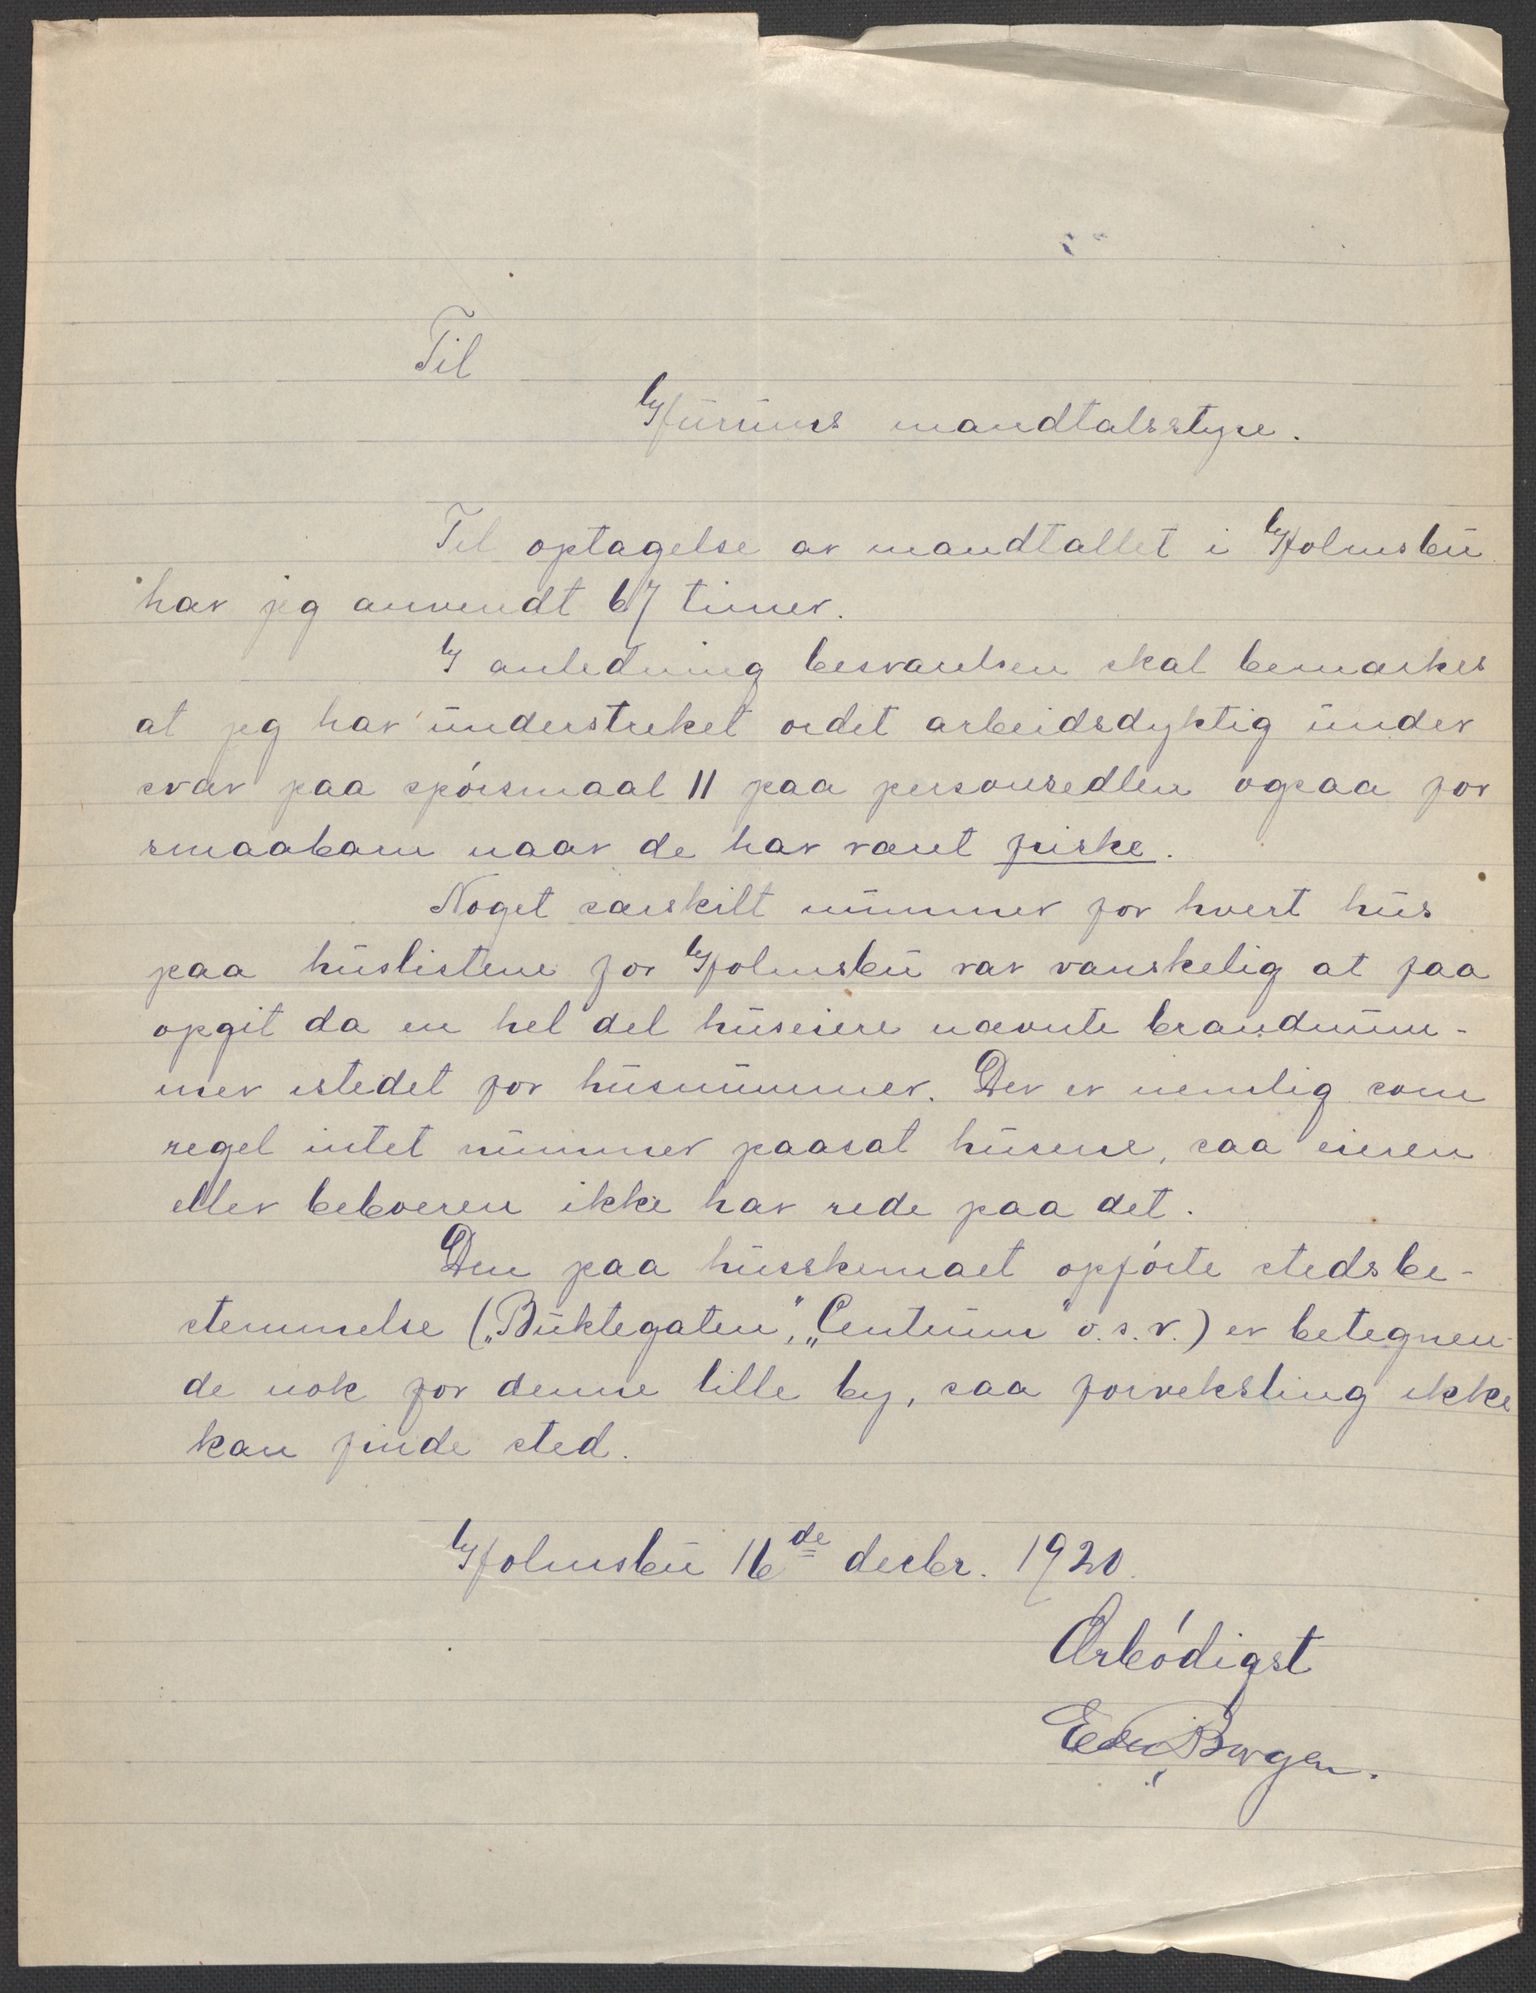 Til
Hurums mandtalsstyre.
Til optagelse av mandtallet i Holmsbu
har jeg anvendt 67 timer.
I anledning besvarelsen skal bemærkes
at jeg har understreket ordet arbeidsdyktig under
svar paa spórsmaal 11 paa personsedlen ogsaa for
smaabarn naar de har været friske.
Noget særskilt nummer for hvert hus
paa huslistene for Holmsbu var vanskelig at faa
opgit da en hel del huseiere nævnte brandnum-
mer istedet for husnummer. Der er nemlig som
regel intet nummer paasat husene, saa eieren
eller beboeren ikke har rede paa det.
Den paa husskemaet opfórte stedsbe-
stemmelse („Buktegaten", „Centrum" o.s.v.) er betegnen-
de nok for denne lille by, saa forveksling ikke
kan finde sted.
Holmsbu 16de decbr. 1920.
Ærbódigst
Borgen.